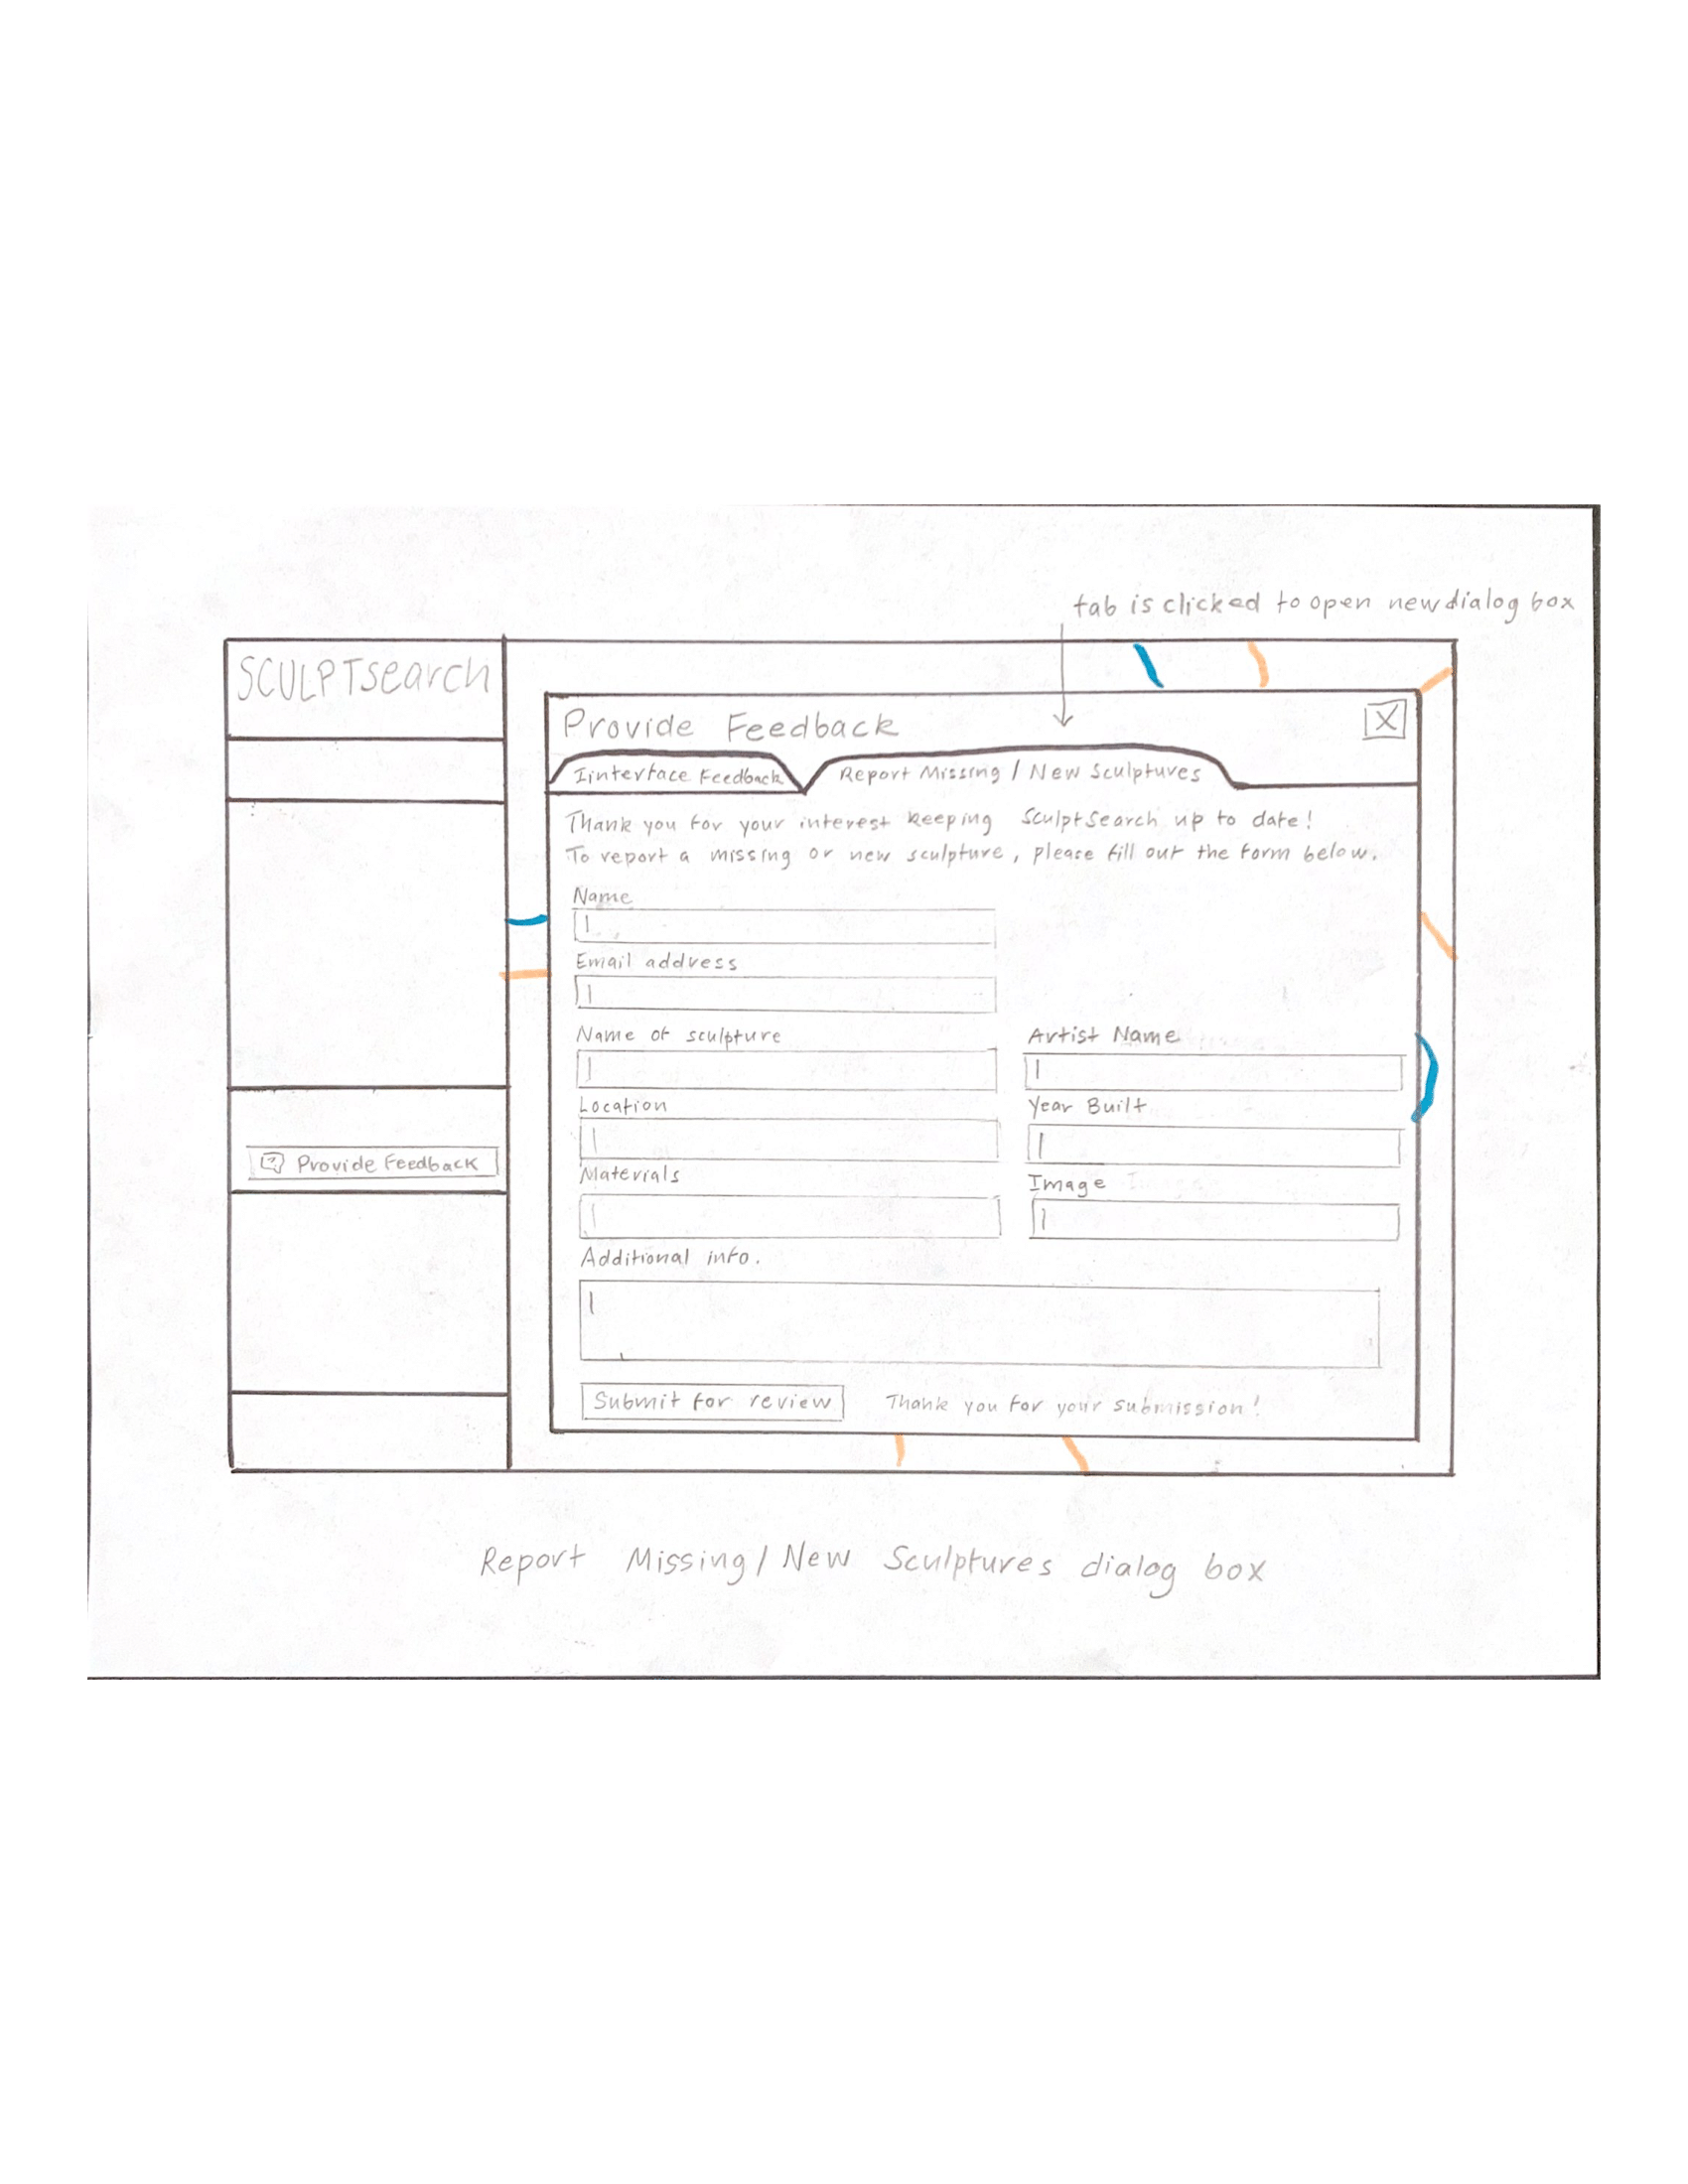 tab is clicked to open new dialog box
SCULPTsearch
Provide Feedback
X
Iinterface Feedback
Report Missing / New Sculptures
Thank you for your interest keeping SculptSearch up to date!
To report a missing or new sculpture, please fill out the form below.
Name
Email address
Name of sculpture
Artist Name
Location
Year Built
Provide Feedback
Materials
Image
Additional info.
Submit for review
Thank you for your submission!
Report Missing / New Sculptures dialog box